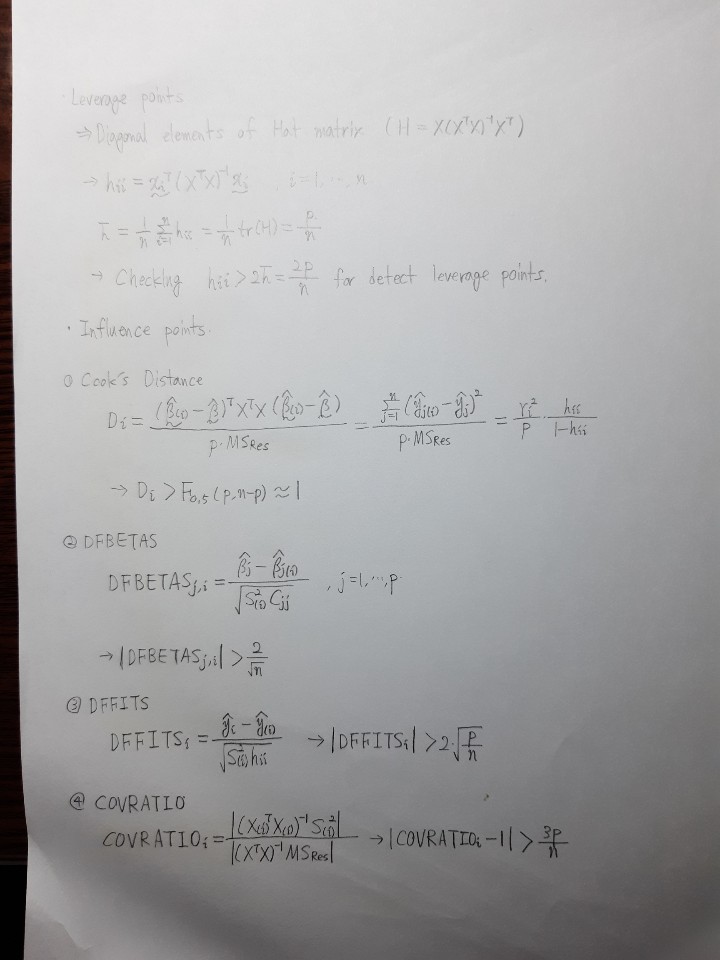 · Leverage points
⇒ Diagonal elements of Hat matrix (H = X(XᵀX)⁻¹Xᵀ)
→ hii = xiᵀ(XᵀX)⁻¹xi , i=1, ⋯, n
h̄ = 1/n Σ_{i=1}^{n} hii = 1/n tr(H) = p/n
→ Checking hii > 2h̄ = 2p/n for detect leverage points.
· Influence points
① Cook's Distance
Di = (β̂(i) − β̂)ᵀXᵀX(β̂(i) − β̂) / p·MSRes = Σ_{j=1}^{n}(ŷj(i) − ŷj)² / p·MSRes = ri²/p · hii/(1−hii)
→ Di > F0.5(p, n−p) ≈ 1
② DFBETAS
DFBETASj,i = (β̂j − β̂j(i)) / √(S²(i) Cjj) , j=1,⋯,p
→ |DFBETASj,i| > 2/√n
③ DFFITS
DFFITSi = (ŷi − ŷ(i)) / √(S²(i) hii) → |DFFITSi| > 2·√(p/n)
④ COVRATIO
COVRATIOi = |(X(i)ᵀX(i))⁻¹S(i)²| / |(XᵀX)⁻¹MSRes| → |COVRATIOi − 1| > 3p/n